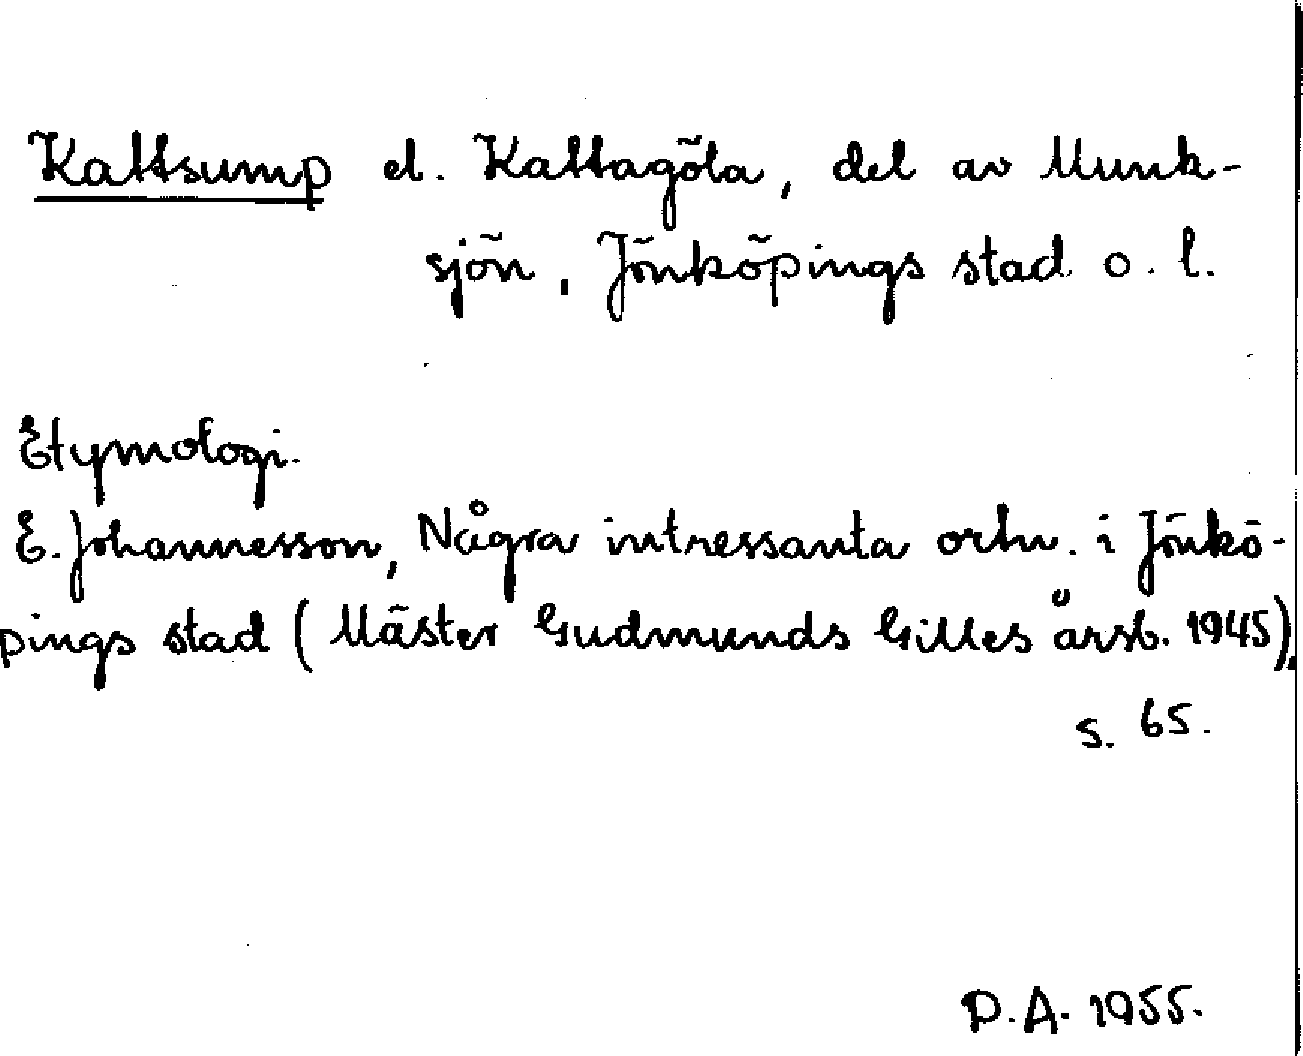 Kattsump el. Kattagöla, del av Munk-
sjön, Jönköpings stad o. l.
Etymologi.
E. Johannesson, Några intressanta ortn. i Jönkö-
pings stad (Mäster Gudmunds Gilles årsb. 1945),
s. 65.
D.A. 1955.